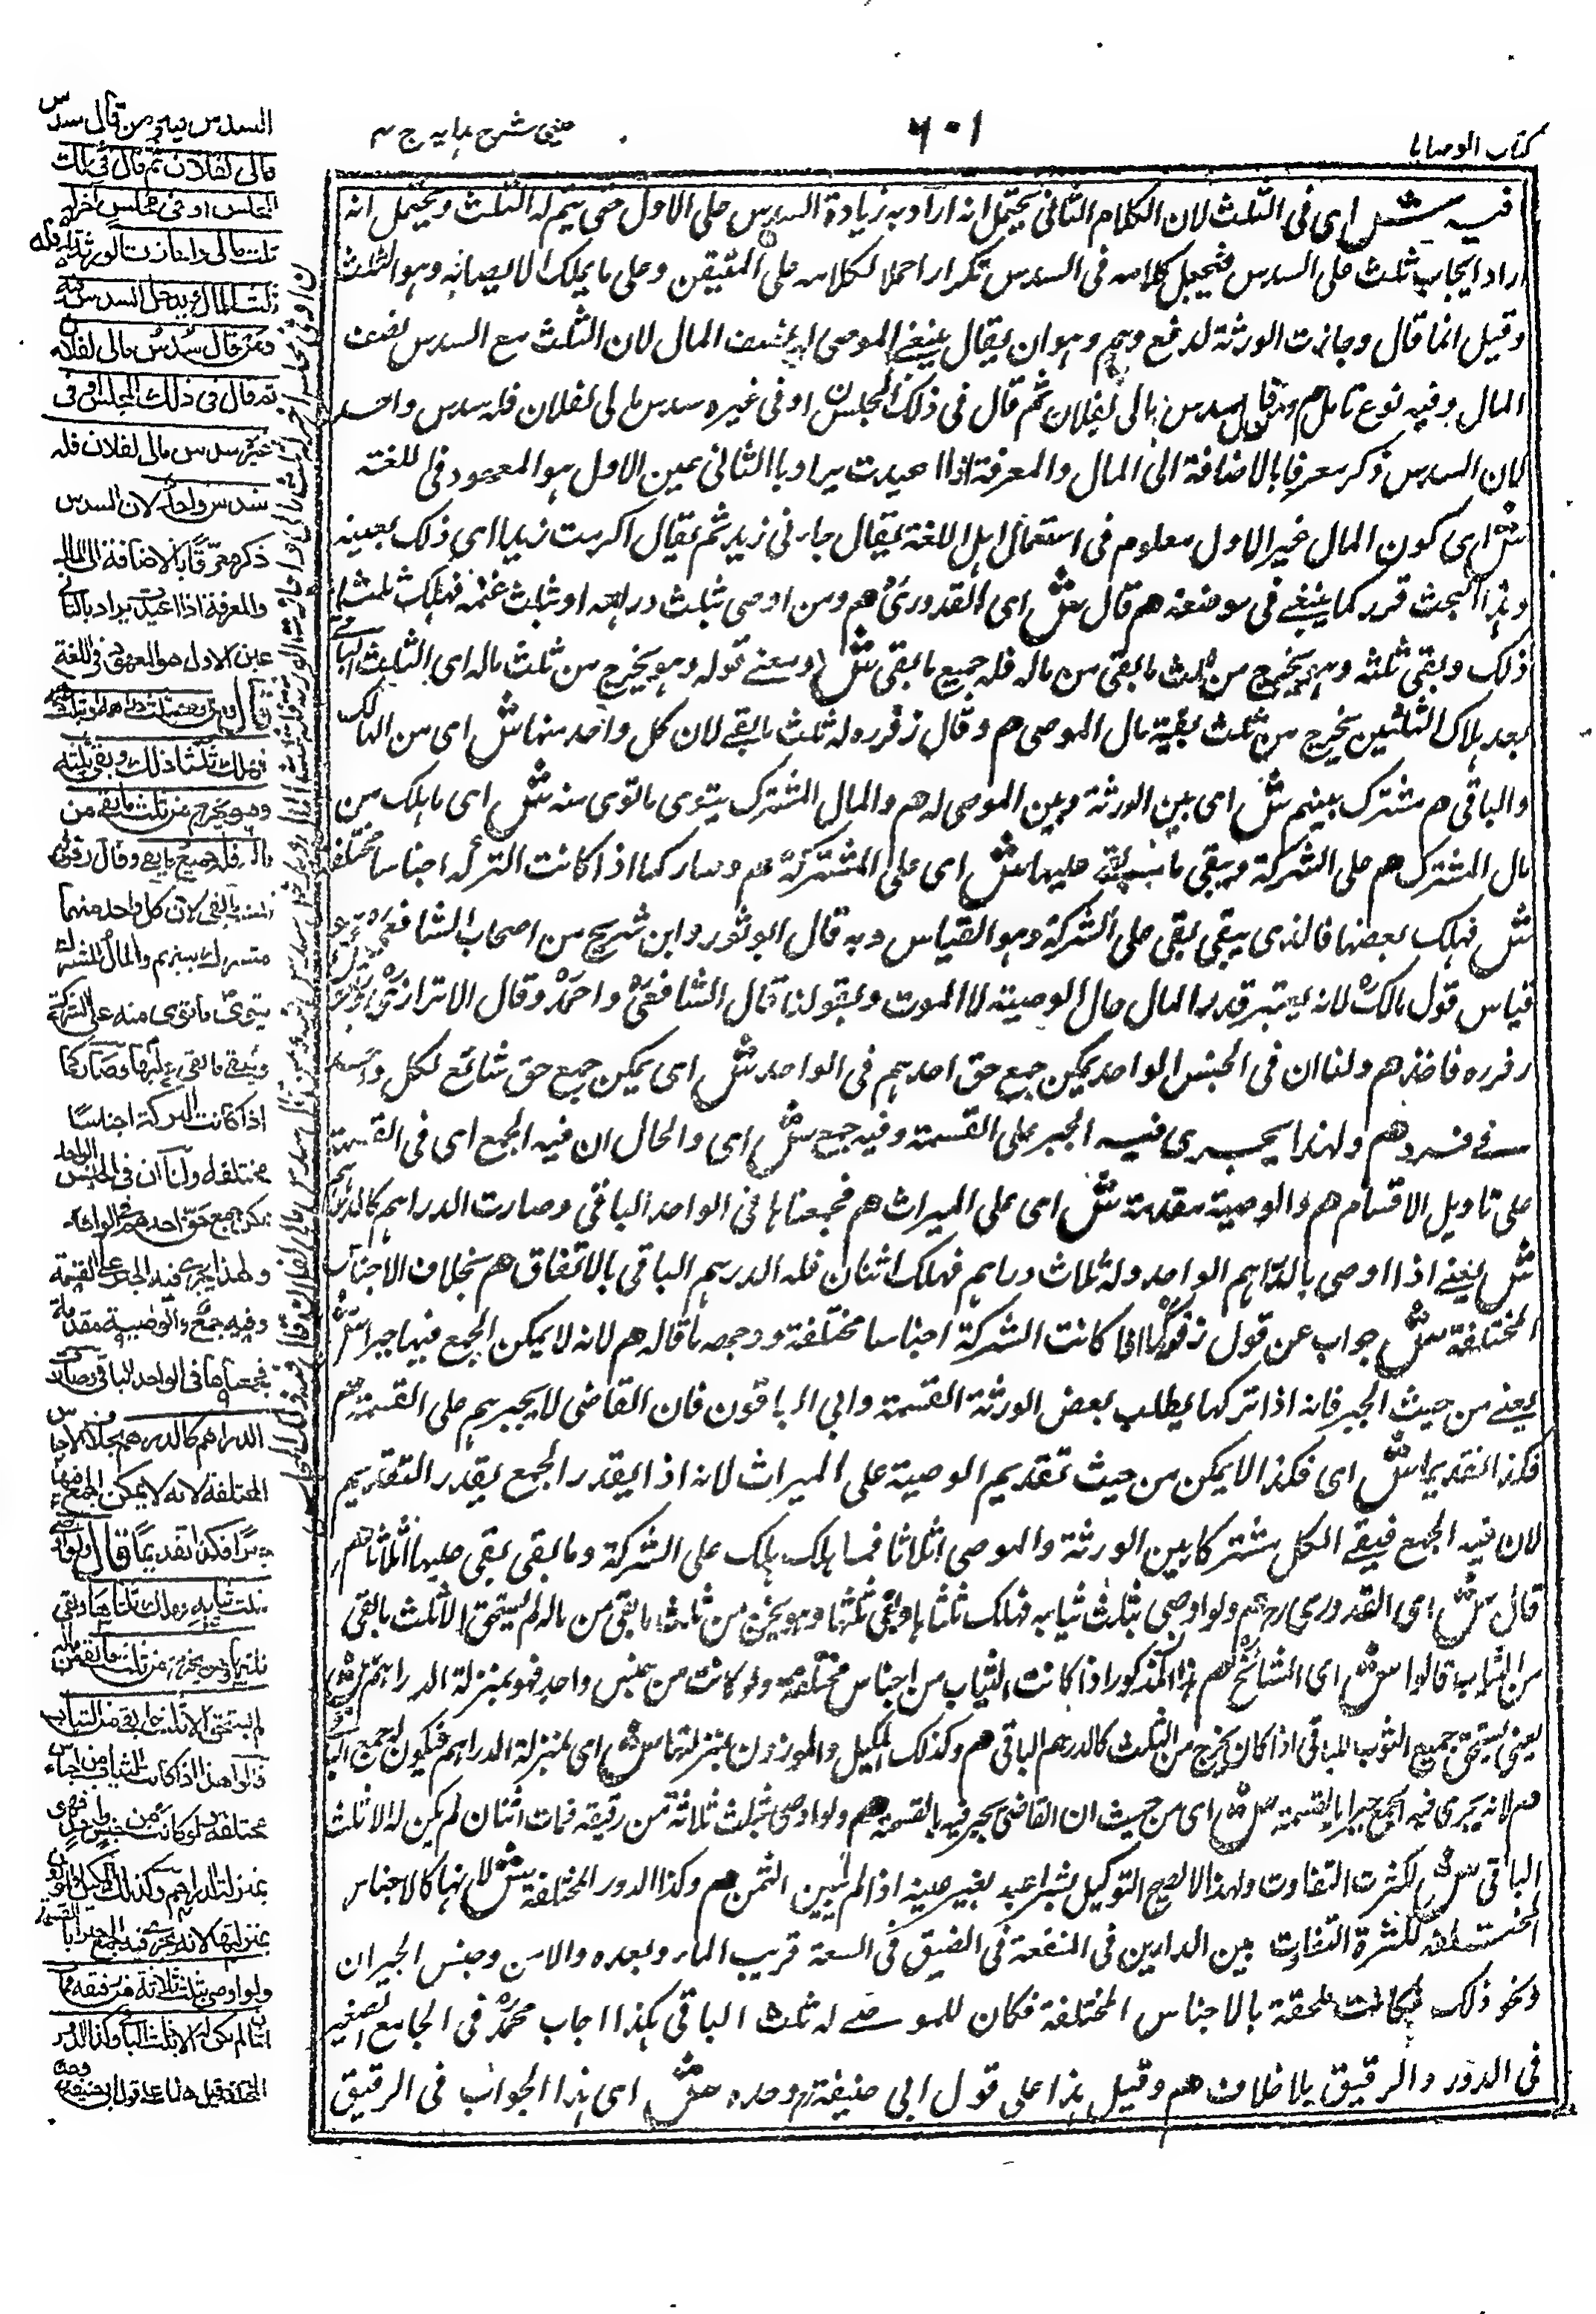 كتاب الوصايا
٦٠١
عينى شرح ہدايه ج ٣
فيه ش اى فى الثلث لان الكلام الثانى يحتمل انه اراد به زيادة السدس على الاول حتى يتم له الثلث ويحتمل انه
اراد ايجاب ثلث على السدس فيجعل كلامه فى السدس تكرارا حملا لكلامه على المتيقن وعلى ما يملك الايصاء به وهو الثلث
وقيل انما قال وجازت الورثة لدفع وهم وهو ان يقال ينبغى الموصى له نصف المال لان الثلث مع السدس نصف
المال وفيه نوع تامل هم ومن قال سدس مالى لفلان ثم قال فى ذلك المجلس او فى غيره سدس مالى لفلان فله سدس واحد
لان السدس ذكر معرفا بالاضافة الى المال والمعرفة اذا اعيدت يراد بالثانى عين الاول هو المعهود فى اللغة
ش اى كون المال غير الاول معلوم فى استعمال اهل اللغة يقال جاءنى زيد ثم يقال اكرمت زيدا اى ذلك بعينه
وهذا البحث قرر كما ينبغى فى موضعه هم قال ش اى القدورى هم ومن اوصى بثلث دراهمه او بثلث غنمه فهلك ثلثا
ذلك وبقى ثلثه وهو يخرج من ثلث ما بقى من ماله فله جميع ما بقى ش ومعنى قوله وهو يخرج من ثلث ماله اى الثلث الباقى
بعد هلاك الثلثين يخرج من ثلث بقية مال الموصى هم وقال زفر ره له ثلث ما بقى لان كل واحد منهما ش اى من الهالك
والباقى هم مشترك بينهم ش اى بين الورثة وبين الموصى له هم والمال المشترك يتوى ما توى منه ش اى ما هلك من
مال المشترك هم على الشركة ويبقى ما بقى عليها ش اى على المشتركة هم وصار كما اذا كانت التركة اجناسا مختلفة
ش فهلك بعضها فالذى يبقى يبقى على الشركة وهو القياس وبه قال ابو ثور وابن شريح من اصحاب الشافعى
قياس قول مالك لانه يعتبر قدر المال حال الوصية لا الموت وبقولنا قال الشافعى واحمد وقال الاترازى
زفر ره فاخذ هم ولنا ان فى الجنس الواحد يمكن جمع حق احدهم فى الواحد ش اى يمكن جمع حق شائع لكل واحد
فى فرد هم ولهذا يجرى فيه الجبر على القسمة وفيه جمع ش اى والحال ان فيه الجمع اى فى القسمة
على تاويل الاقسام هم والوصية مقدمة ش اى على الميراث هم فجمعناها فى الواحد الباقى وصارت الدراهم كالدرهم
ش يعنى اذا اوصى بالدراهم الواحد وله ثلاث دراهم فهلك اثنان فله الدرهم الباقى بالاتفاق هم بخلاف الاجناس
المختلفة ش جواب عن قول زفر كما اذا كانت الشركة اجناسا مختلفة ووجهه ما قاله هم لانه لا يمكن الجمع فيها جبرا ش
يعنى من حيث الجبر فانه اذا تركها يطلب بعض الورثة القسمة وابى الباقون فان القاضى لا يجبرهم على القسمة هم
فكذا تقديما ش اى فكذا لا يمكن من حيث تقديم الوصية على الميراث لانه اذا يقدر الجمع يقدر التقديم
لان فيه الجمع فبقى الكل مشتركا بين الورثة والموصى اثلاثا فما هلك هلك على الشركة وما بقى بقى عليها اثلاثا هم
قال ش اى القدورى رح هم ولو اوصى بثلث ثيابه فهلك ثلثاها وبقى ثلثها وهو يخرج من ثلث ما بقى من ماله لم يستحق الا ثلث ما بقى
من الثياب قالوا ش اى المشائخ هم هذا المذكور اذا كانت الثياب من اجناس مختلفة ولو كانت من جنس واحد فهو بمنزلة الدراهم ش
يعنى يستحق جميع الثوب الباقى اذا كان يخرج من الثلث كالدرهم الباقى هم وكذلك المكيل والموزون بمنزلتها ش اى بمنزلة الدراهم فيكون له جميع
هم لانه يجرى فيه الجمع جبرا بالقسمة ش اى من حيث ان القاضى يجبر فيه بالقسمة هم ولو اوصى بثلث ثلاثة من رقيقه فمات اثنان لم يكن له الا ثلث
الباقى ش لكثرت التفاوت ولهذا لا يصح التوكيل بشراء عبد بغير عينه اذا لم يبين الثمن هم وكذا الدور المختلفة ش لانها كالاجناس
المختلفة لكثرة التفاوت بين الدارين فى المنفعة فى الضيق فى السعة قريب الماء وبعده والامن وجنس الجيران
ونحو ذلك فكانت ملحقة بالاجناس المختلفة فكان للموصى له ثلث الباقى هكذا اجاب محمد فى الجامع الصغير
فى الدور والرقيق بلا خلاف هم وقيل هذا على قول ابى حنيفة وحده ش اى هذا الجواب فى الرقيق
السدس فيه ومن قال سدس
مالى لفلان ثم قال فى ذلك
المجلس او فى مجلس آخر له
ثلث مالى واجازت الورثة فله
ثلث المال ويدخل السدس فيه
ومن قال سدس مالى لفلان
ثم قال فى ذلك المجلس او فى
غيره سدس مالى لفلان فله
سدس واحد لان السدس
ذكر معرفا بالاضافة الى المال
والمعرفة اذا اعيدت يراد بالثانى
عين الاول هو المعهود فى اللغة
قال ومن اوصى بثلث دراهمه او بثلث غنمه
فهلك ثلثا ذلك وبقى ثلثه
وهو يخرج من ثلث ما بقى من
ماله فله جميع ما بقى وقال زفر
له ثلث ما بقى لان كل واحد منهما
مشترك بينهم والمال المشترك
يتوى ما توى منه على الشركة
ويبقى ما بقى عليها وصار كما
اذا كانت التركة اجناسا
مختلفة ولنا ان فى الجنس الواحد
يمكن جمع حق احدهم فى الواحد
ولهذا يجرى فيه الجبر على القسمة
وفيه جمع والوصية مقدمة
فجمعناها فى الواحد الباقى وصارت
الدراهم كالدرهم بخلاف الاجناس
المختلفة لانه لا يمكن الجمع فيها
جبرا فكذا تقديما قال ولو اوصى
بثلث ثيابه فهلك ثلثاها وبقى
ثلثها وهو يخرج من ثلث ما بقى من ماله
لم يستحق الا ثلث ما بقى من الثياب
قالوا هذا اذا كانت الثياب من اجناس
مختلفة ولو كانت من جنس واحد فهى
بمنزلة الدراهم وكذلك المكيل والموزون
بمنزلتها لانه يجرى فيه الجمع جبرا بالقسمة
ولو اوصى بثلث ثلاثة من رقيقه فمات
اثنان لم يكن له الا ثلث الباقى وكذا الدور
المختلفة قيل هذا على قول ابى حنيفة وحده